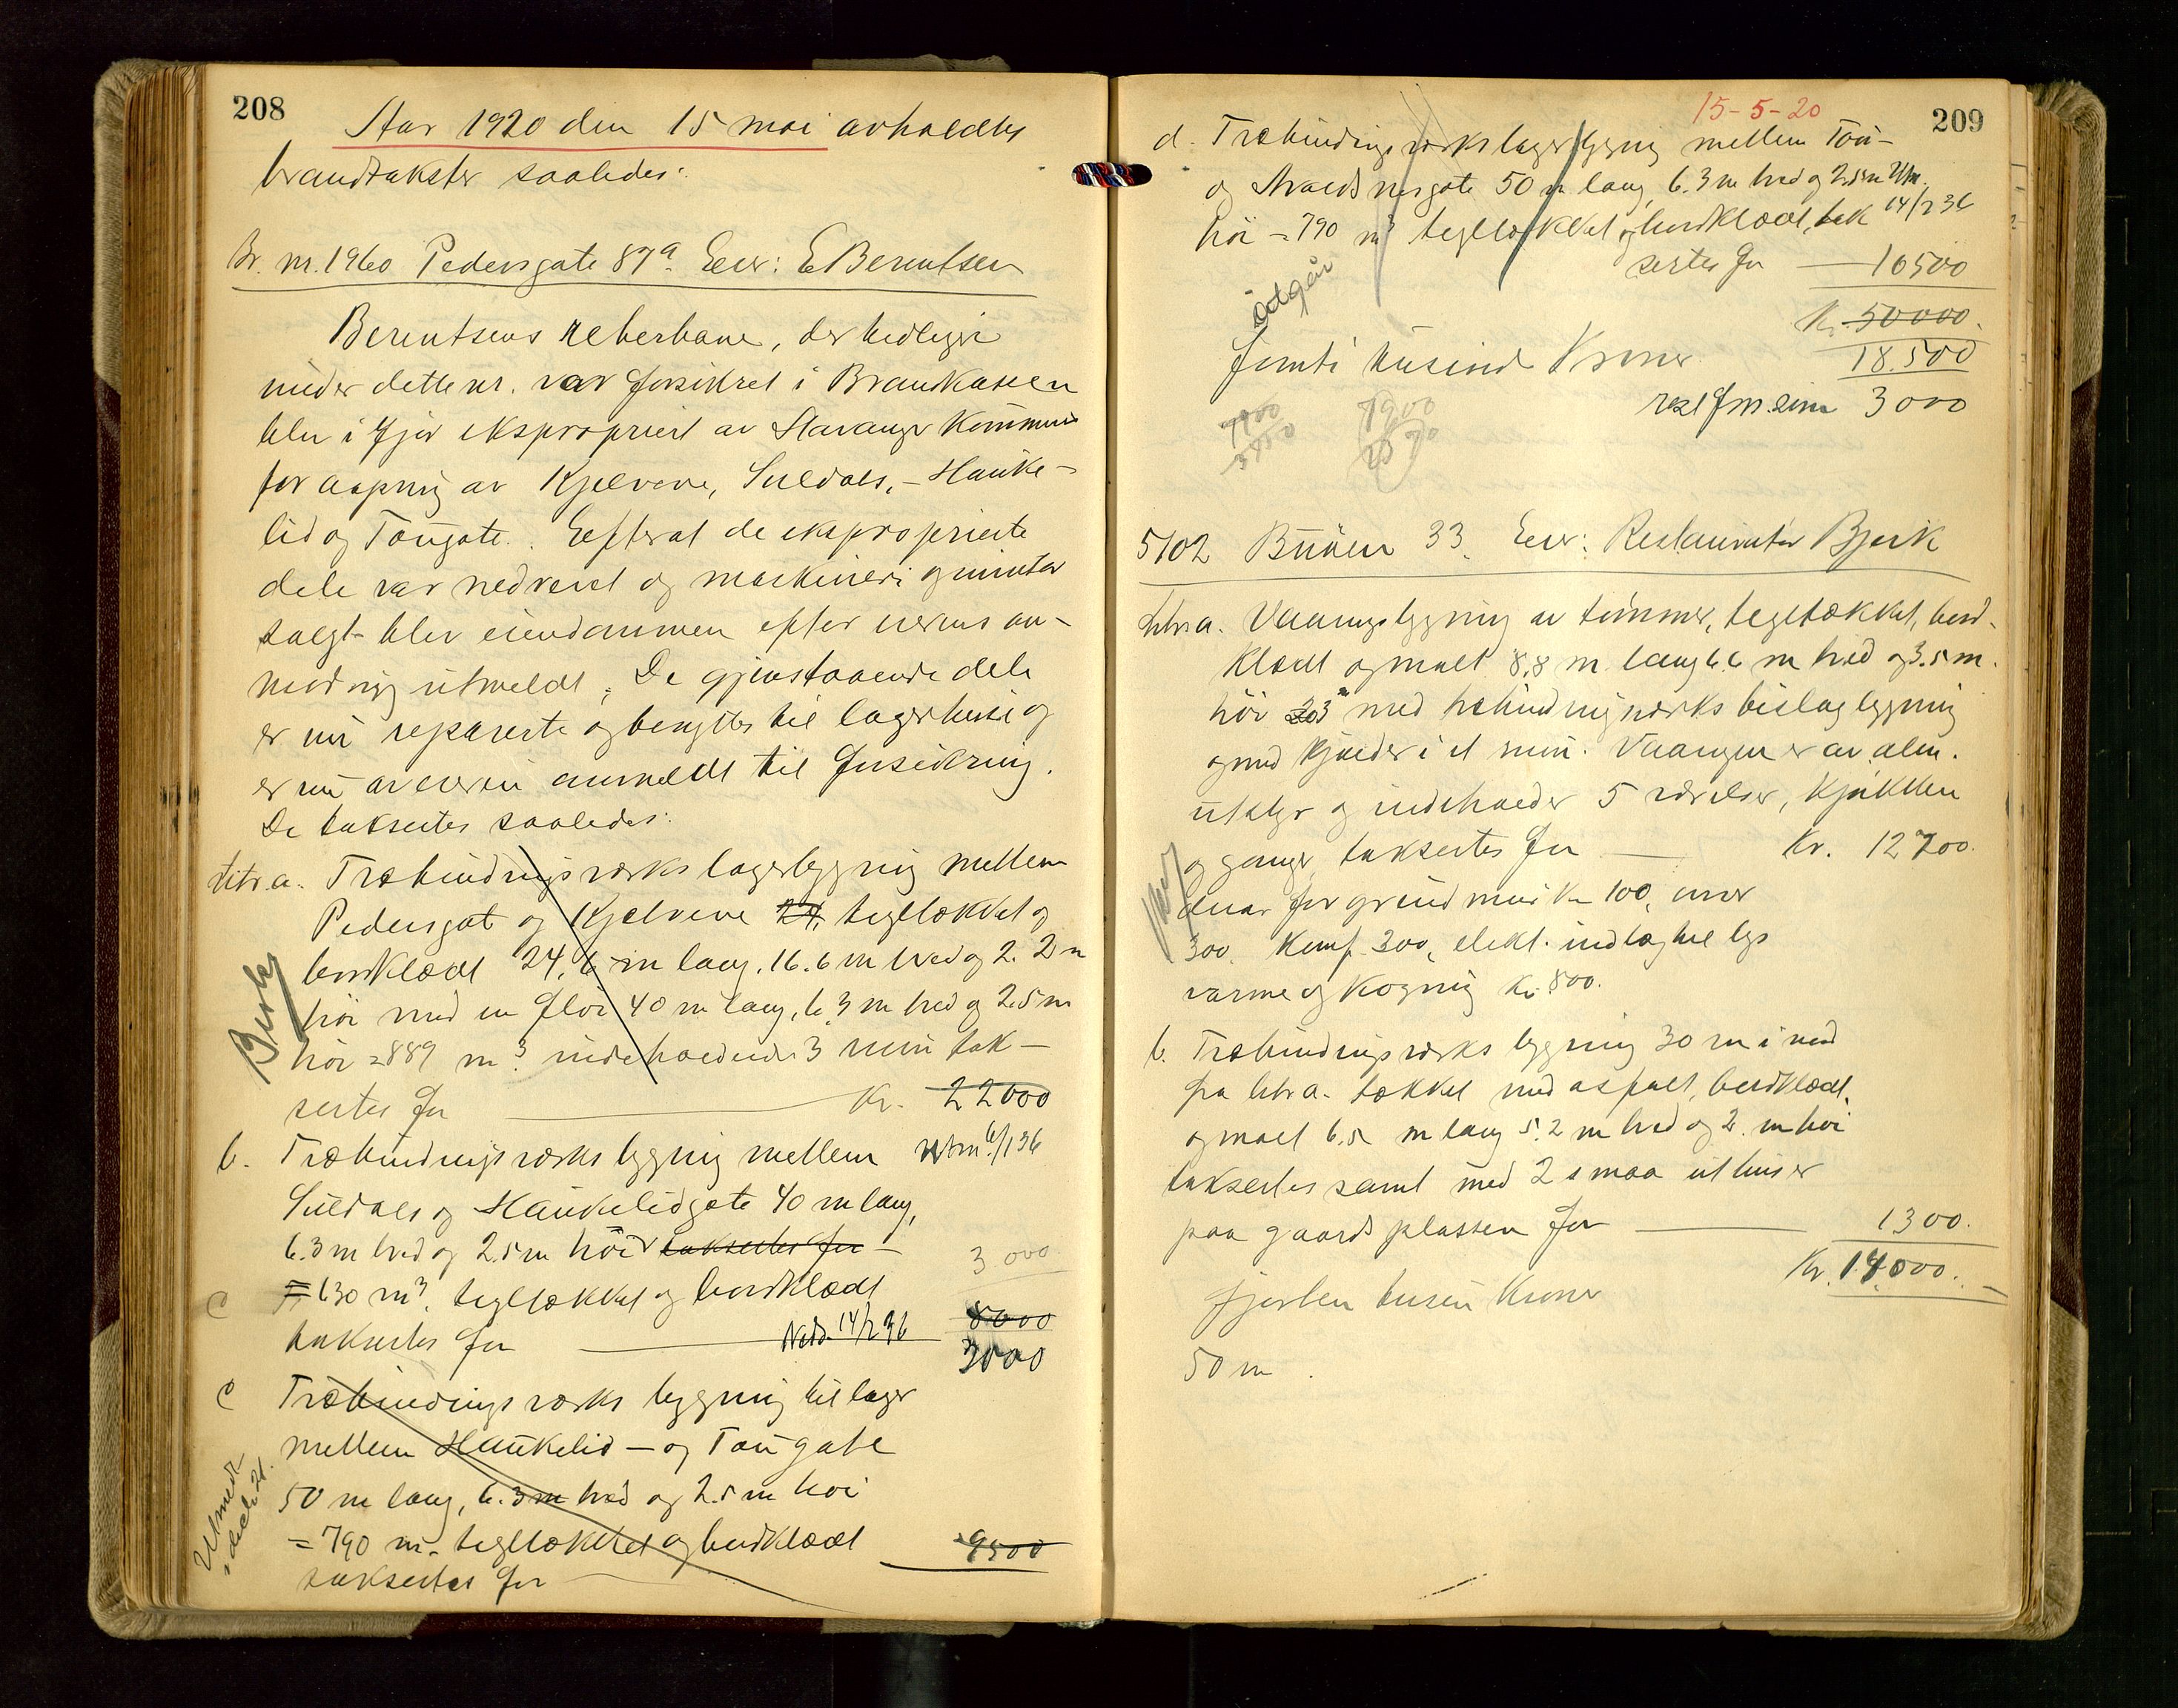 208
Aar 1920 den 15 mai avholdtes
brandtakster saaledes:
Br. nr. 1960 Pedersgate 87a. Eier: E Berentsen
Berentsens reberbane, der tidligere
under dette nr. var forsikret i Brandkassen
blev i fjor ekspropriert av Stavanger Kommune
for aapning av Kjelvene, Suldals,- Hauke-
lid og Tougate. Efterat de eksproprierte
dele var nedrevet og maskineri
solgt blev eiendommen efter eierens an-
modning utmeldt. De gjenstaaende dele
er nu reparerte og benyttes til lagerhuse og
er nu av eieren anmeldt til forsikring.
De takseres saaledes:
Litr. a. Træbindingsverks lagerbygning mellem
Pedersgat og Kjelvene 24, tegltækket og
bordklædt 24,6 m lang, 16.6 m bred og 2.2 m
høi med en fløi 40 m lang, 6.3 m bred og 2.5 m
høi = 889 m3 indeholdende 3 rum tak-
sertes for Kr. 22000
b. Træbindingsverks bygning mellem
Suldals og Haukelidgate 40 m lang,
6.3 m bred og 2.5 m høi taksertes for -
= 630 m3. tegltækket og bordklædt 3000
taksertes for Neds. 14/2 36 8000
3000
c Træbindingsverks bygning til lager
mellem Haukelid- og Tougate
50 m lang, 6.3 m bred og 2.5 m høi
= 790 m3 tegltækket og bordklædt 9500
taksertes for
Utmeldt
15-5-20
209
d. Træbindingsverks lagerbygning mellem Tou-
og Avaldsnesgate 50 m lang, 6.3 m bred og 2.5 m
høi = 790 m3 tegltækket og bordklædt, tak 14/2 36
sertes for 10500
utgår
Kr. 50000.
femti tusind Kroner 18.500
3000
7900 7900
5102 Buøen 33. Eier: Restauratør Bjerk
Litr a. Vaaningsbygning av tømmer, tegltækket, bord-
klædt og malt 8,8 m lang 6.6 m bred og 3.5 m.
høi 203 med træbindingsverks bislagbygning
og med kjælder i et rum. Vaaningen er av alm.
utstyr og indeholder 5 værelser, kjøkken
og gange, taksertes for Kr. 12700.
derav for grundmur Kr 100, ovner
300. Komf. 300, elekt. indlæg til lys
varme og kogning Kr. 800.
b. Træbindingsverks bygning 30 m i nord
fra litr a. tækket med asfalt, bordklædt,
og malt 6.5 m lang 5.2 m bred og 2. m høi
taksertes samt med 2 smaa uthuser
paa gaardsplassen for 1300.
Kr. 14.000.
fjorten tusen Kroner
50 m.